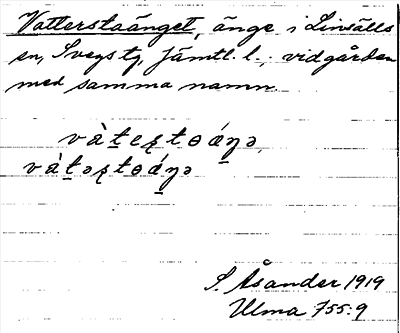 Vatterstaänget, änge i Linsälls
sn, Svegs tg, Jämtl. l.; vid gården
med samma namn.
vàteʂtɵǽŋə,
vàtəʂtɵǽŋə
S. Åsander 1919
Ulma 755:9